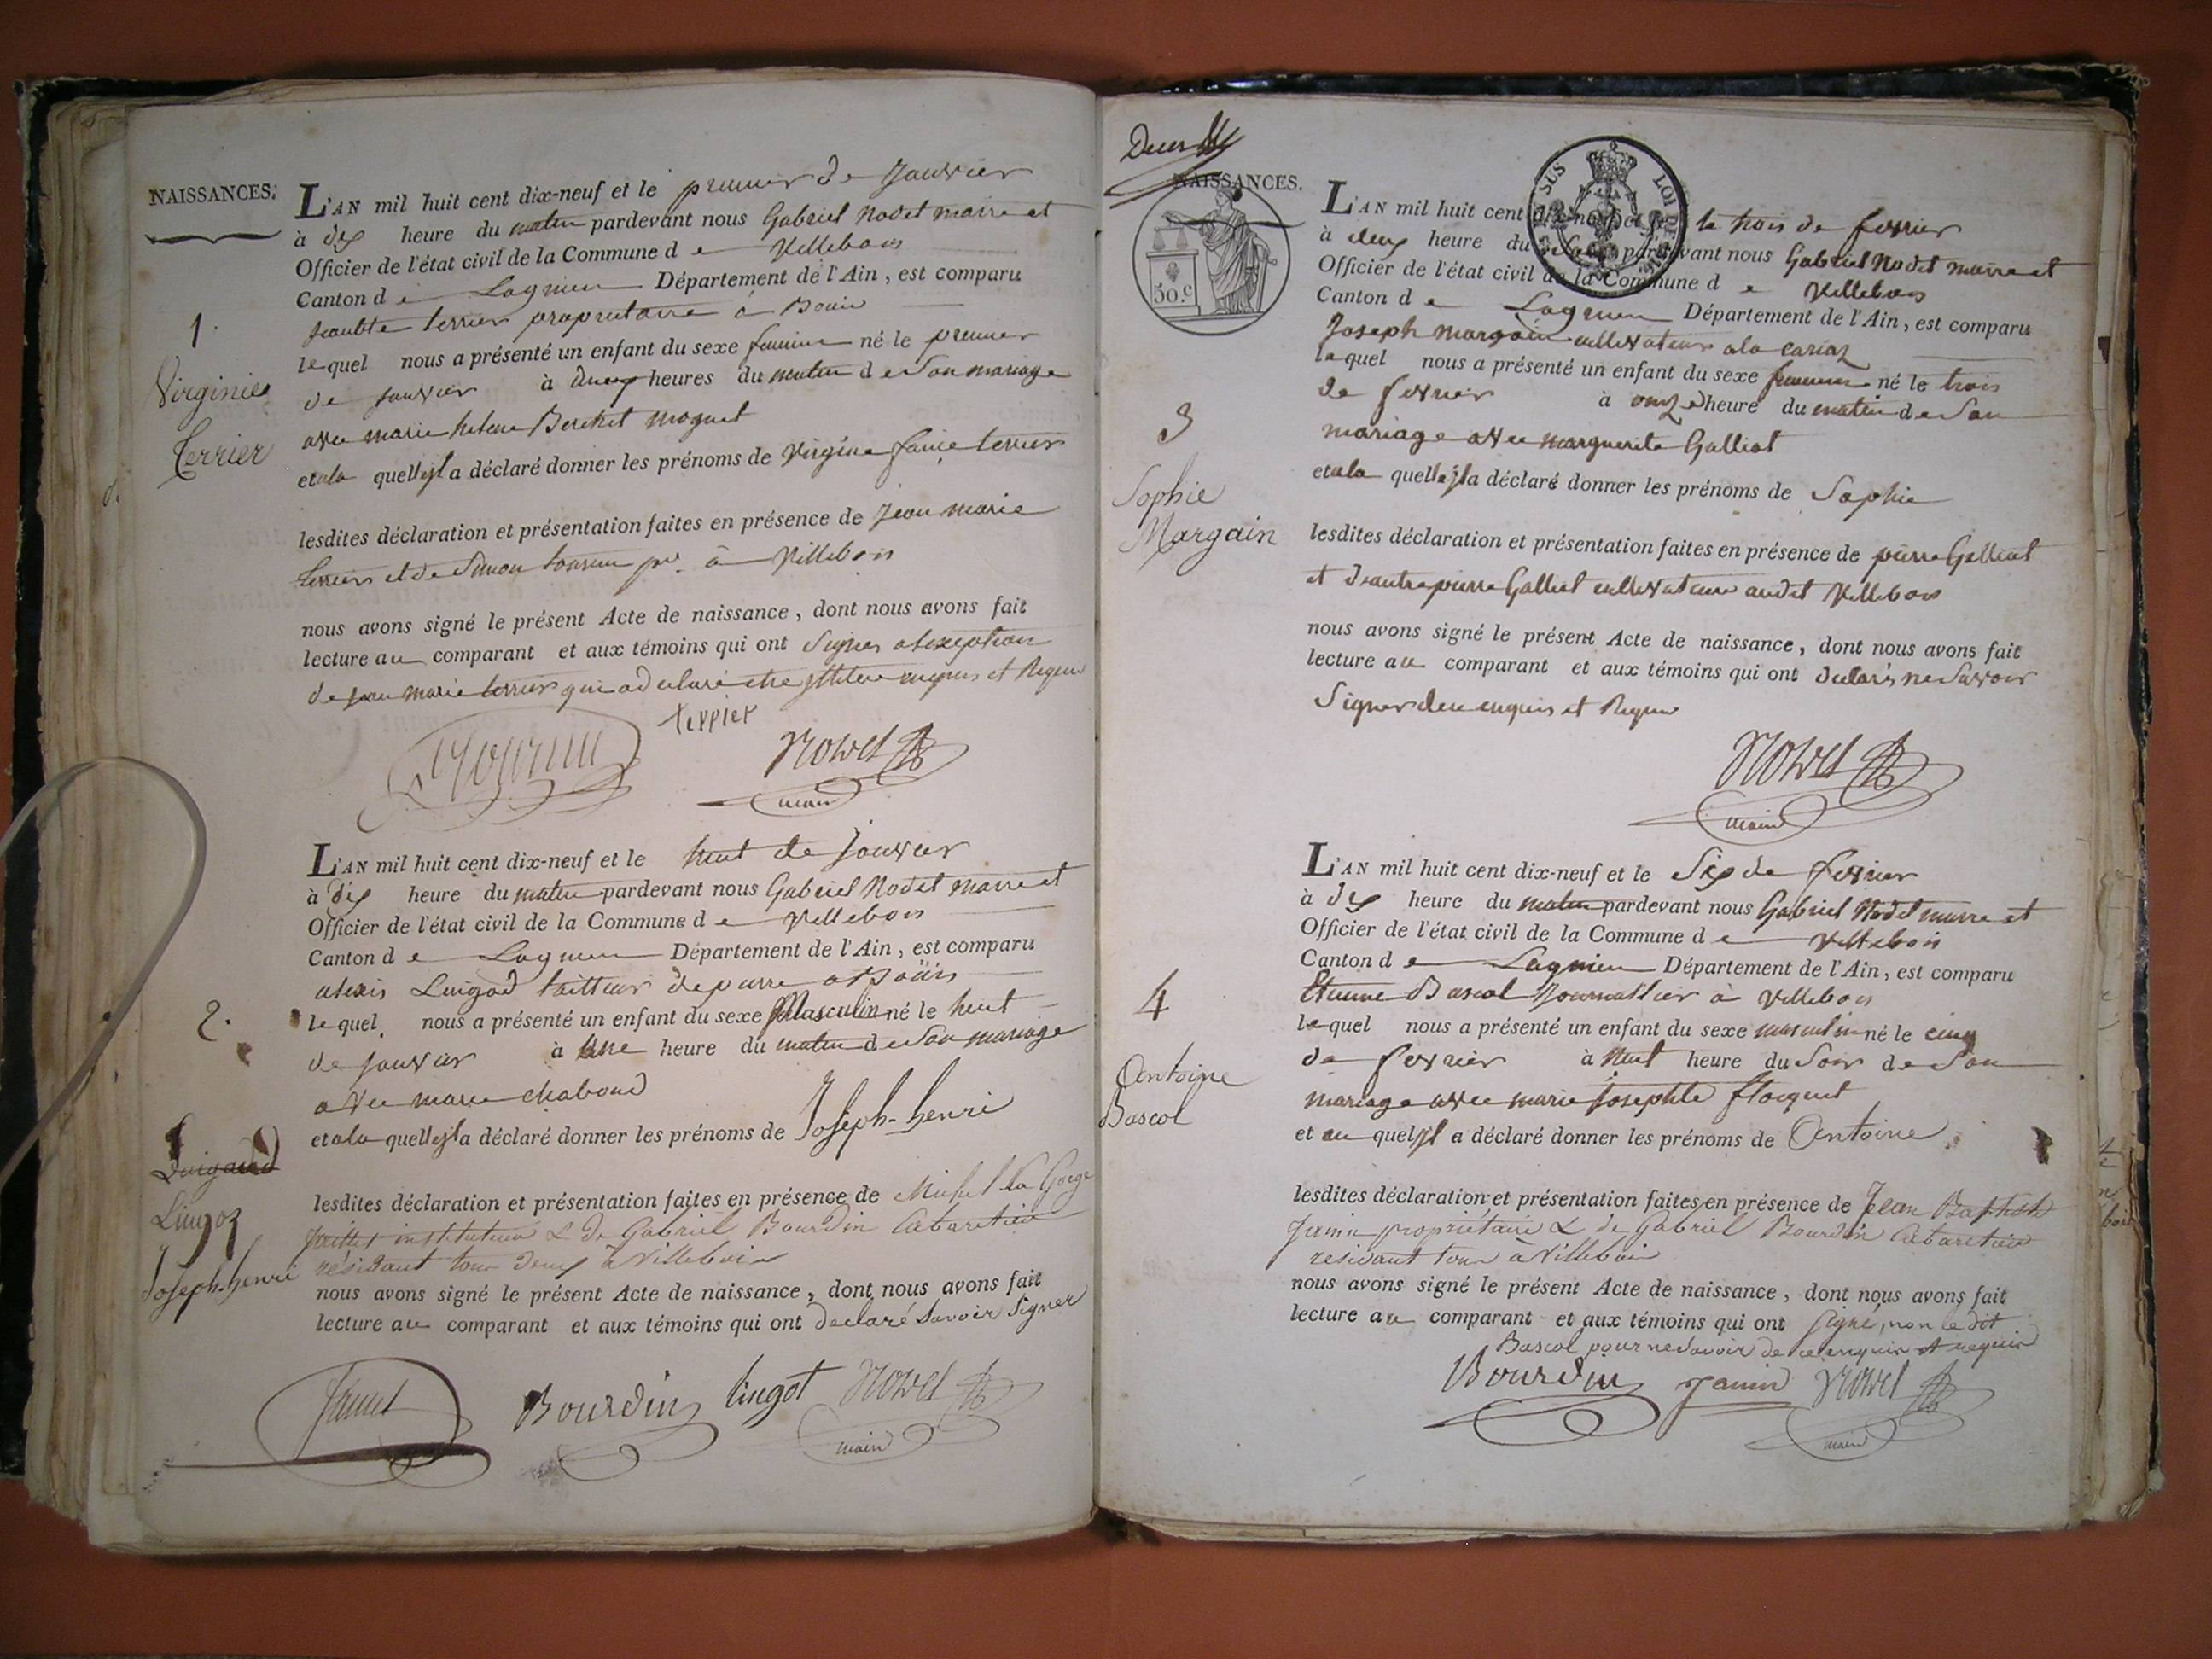 NAISSANCES.
L'AN mil huit cent dix-neuf et le premier de Janvier
à dix heure du matin pardevant nous Gabriel Nodet maire et
Officier de l'état civil de la Commune d e Villebois
Canton d e Lagnieu Département de l'Ain, est comparu
terrier propriétaire à Bouis
1.
lequel nous a présenté un enfant du sexe feminin né le premier
de janvier à heures du matin de son mariage
Virginie
Terrier
avec marie helene Berchet moguet
et a la quelle il a déclaré donner les prénoms de virgine terrier
lesdites déclaration et présentation faites en présence de jean marie
terrier et de Simon à Villebois
nous avons signé le présent Acte de naissance, dont nous avons fait
lecture au comparant et aux témoins qui ont Signer a lexeption
de jean marie terrier qui a declaré etre enquis et Requis
terrier
Nodet
maire
L'AN mil huit cent dix-neuf et le huit de janvier
à dix heure du matin pardevant nous Gabriel Nodet maire et
Officier de l'état civil de la Commune d e Villebois
Canton d e Lagnieu Département de l'Ain, est comparu
alexis tailleur de pierre a Boüis
2.
lequel nous a présenté un enfant du sexe Masculin né le huit
de janvier à une heure du matin de Son mariage
avec marie chaboud
et a la quelle il a déclaré donner les prénoms de Joseph-henri
Lingoz
Joseph-henri
lesdites déclaration et présentation faites en présence de Michel la Gorge
instituteur & de Gabriel Bourdin Cabaretier
résidant tous deux à Villebois
nous avons signé le présent Acte de naissance, dont nous avons fait
lecture au comparant et aux témoins qui ont declaré Savoir Signer
Bourdin lingot Nodet
maire
NAISSANCES.
50.c
L'AN mil huit cent dix-neuf et le le trois de fevrier
à deux heure du pardevant nous Gabriel Nodet maire et
Officier de l'état civil de la Commune d e Villebois
Canton d e Lagnieu Département de l'Ain, est comparu
Joseph margain cultivateur a la
lequel nous a présenté un enfant du sexe feminin né le trois
de fevrier à onze heure du matin de Son
3
mariage avec marguerite Galliot
et a la quelle il a déclaré donner les prénoms de Sophie
Sophie
Margain
lesdites déclaration et présentation faites en présence de pierre Galliot
et d'autre pierre Galliot cultivateur audit Villebois
nous avons signé le présent Acte de naissance, dont nous avons fait
lecture au comparant et aux témoins qui ont déclarés ne Savoir
Signer de ce enquis et Requis
Nodet
maire
L'AN mil huit cent dix-neuf et le Six de fevrier
à dix heure du matin pardevant nous Gabriel Nodet maire et
Officier de l'état civil de la Commune d e Villebois
Canton d e Lagnieu Département de l'Ain, est comparu
Etienne Bascol Journallier à Villebois
4
lequel nous a présenté un enfant du sexe masculin né le cinq
de fevrier à huit heure du Soir de Son
Antoine
Bascol
mariage avec marie josephte floquet
et au quel il a déclaré donner les prénoms de Antoine
lesdites déclaration et présentation faites en présence de Jean Baptiste
Janin propriétaire & de Gabriel Bourdin Cabaretier
residant tous à Villebois
nous avons signé le présent Acte de naissance, dont nous avons fait
lecture au comparant et aux témoins qui ont signé, non le dit
Bascol pour ne Savoir de ce enquis et requis
Bourdin Janin Nodet
maire